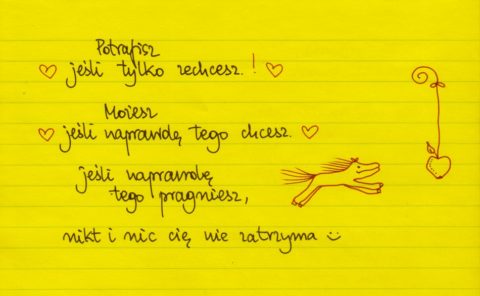 Potrafisz
jeśli tylko zechcesz.!
Możesz
jeśli naprawdę tego chcesz.
jeśli naprawdę
tego pragniesz,
nikt i nic cię nie zatrzyma :)